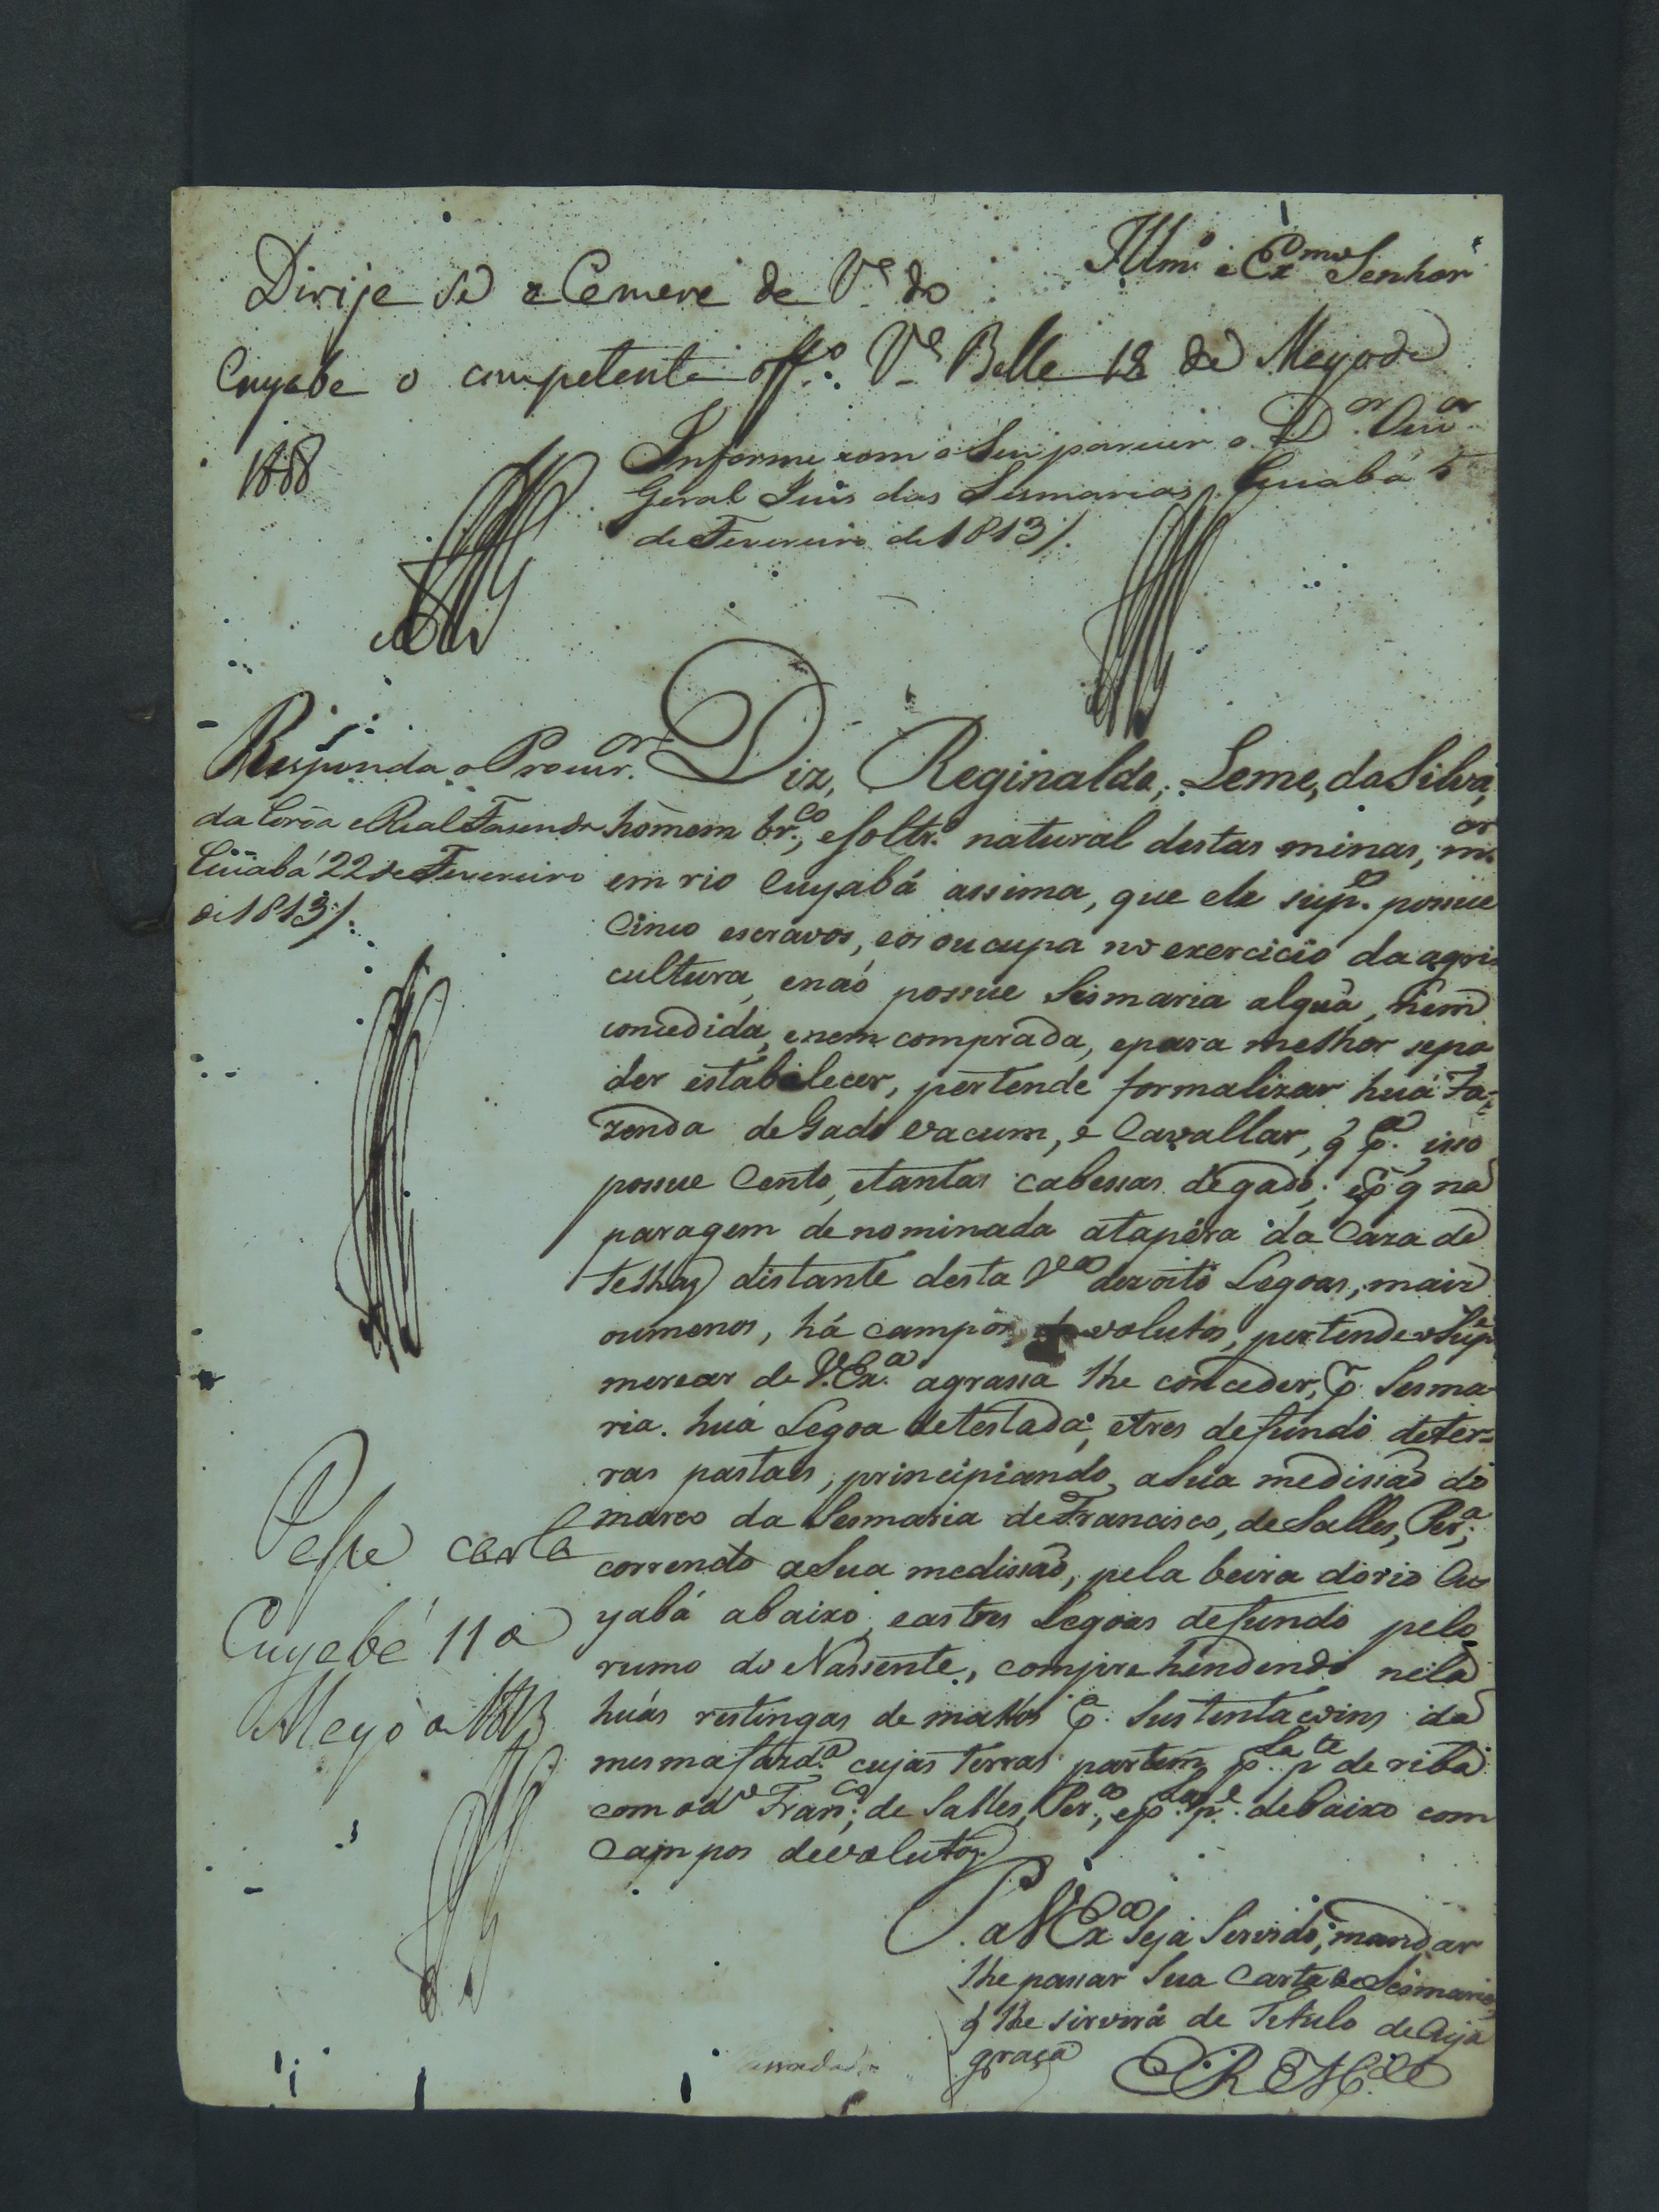 Illmo. e Exmo. Senhor
Dirije se a Camara da Va. do
Cuyaba o competente offo. Va. Bella 18 de Mayo de
18
Informe com o seu parecer o Dor. Ouvor.
Geral Juis das Sesmarias. Cuiabá 5
de Fevereiro de 1813/.
Responda o Procuror.
da Coroa e Real Fasenda
Cuiabá 22 de Fevereiro
de 1813/.
Diz, Reginaldo, Leme, da Silva,
homem brco., e soltro. natural destas minas, mor
em rio Cuyabá assima, que ele supe. possue
Cinco escravos, e os oucupa no exercicio da agri
cultura, e naó possue Sesmaria algua, nem
concedida, e nem comprada, e para melhor se po
der estabalecer, pertende formalizar huá Fa-
zenda de Gado vacum, e Cavallar, q pa. isso
possue Cento, e tantas cabessas de gado; e p q na
paragem denominada a tapéra da Caza de
telhas distante desta Va dezoito Legoas, mais
ou menos, há campos devolutos, pertende o Supe
merecer de V. Exa. a grassa lhe conceder, p. Sesma-
ria. huá Legoa de testada, e tres de fundo de ter-
ras pastaes, principiando, a sua medissaó do
marco da Sesmaria de Francisco, de Salles, Pera.,
correndo a sua medissaó, pela beira do rio Cu
yabá abaixo, e as tres Legoas de fundo pelo
rumo do Nassente, comprehendendo nela
huás restingas de matos pa. sustentacoins da
mesma fazda. cujas terras partem pla. pte de riba
com o do Franco. de Salles, Pera., e pla. pe. de baixo com
Campos devolutos
Passe carta
Cuyabá 11 a
Mayo a 1813
P. a V Exa seja servido, mandar
lhe passar sua Carta de Sesmaria
q lhe servirá de Titulo de Cuja
graça
E. R. Mce